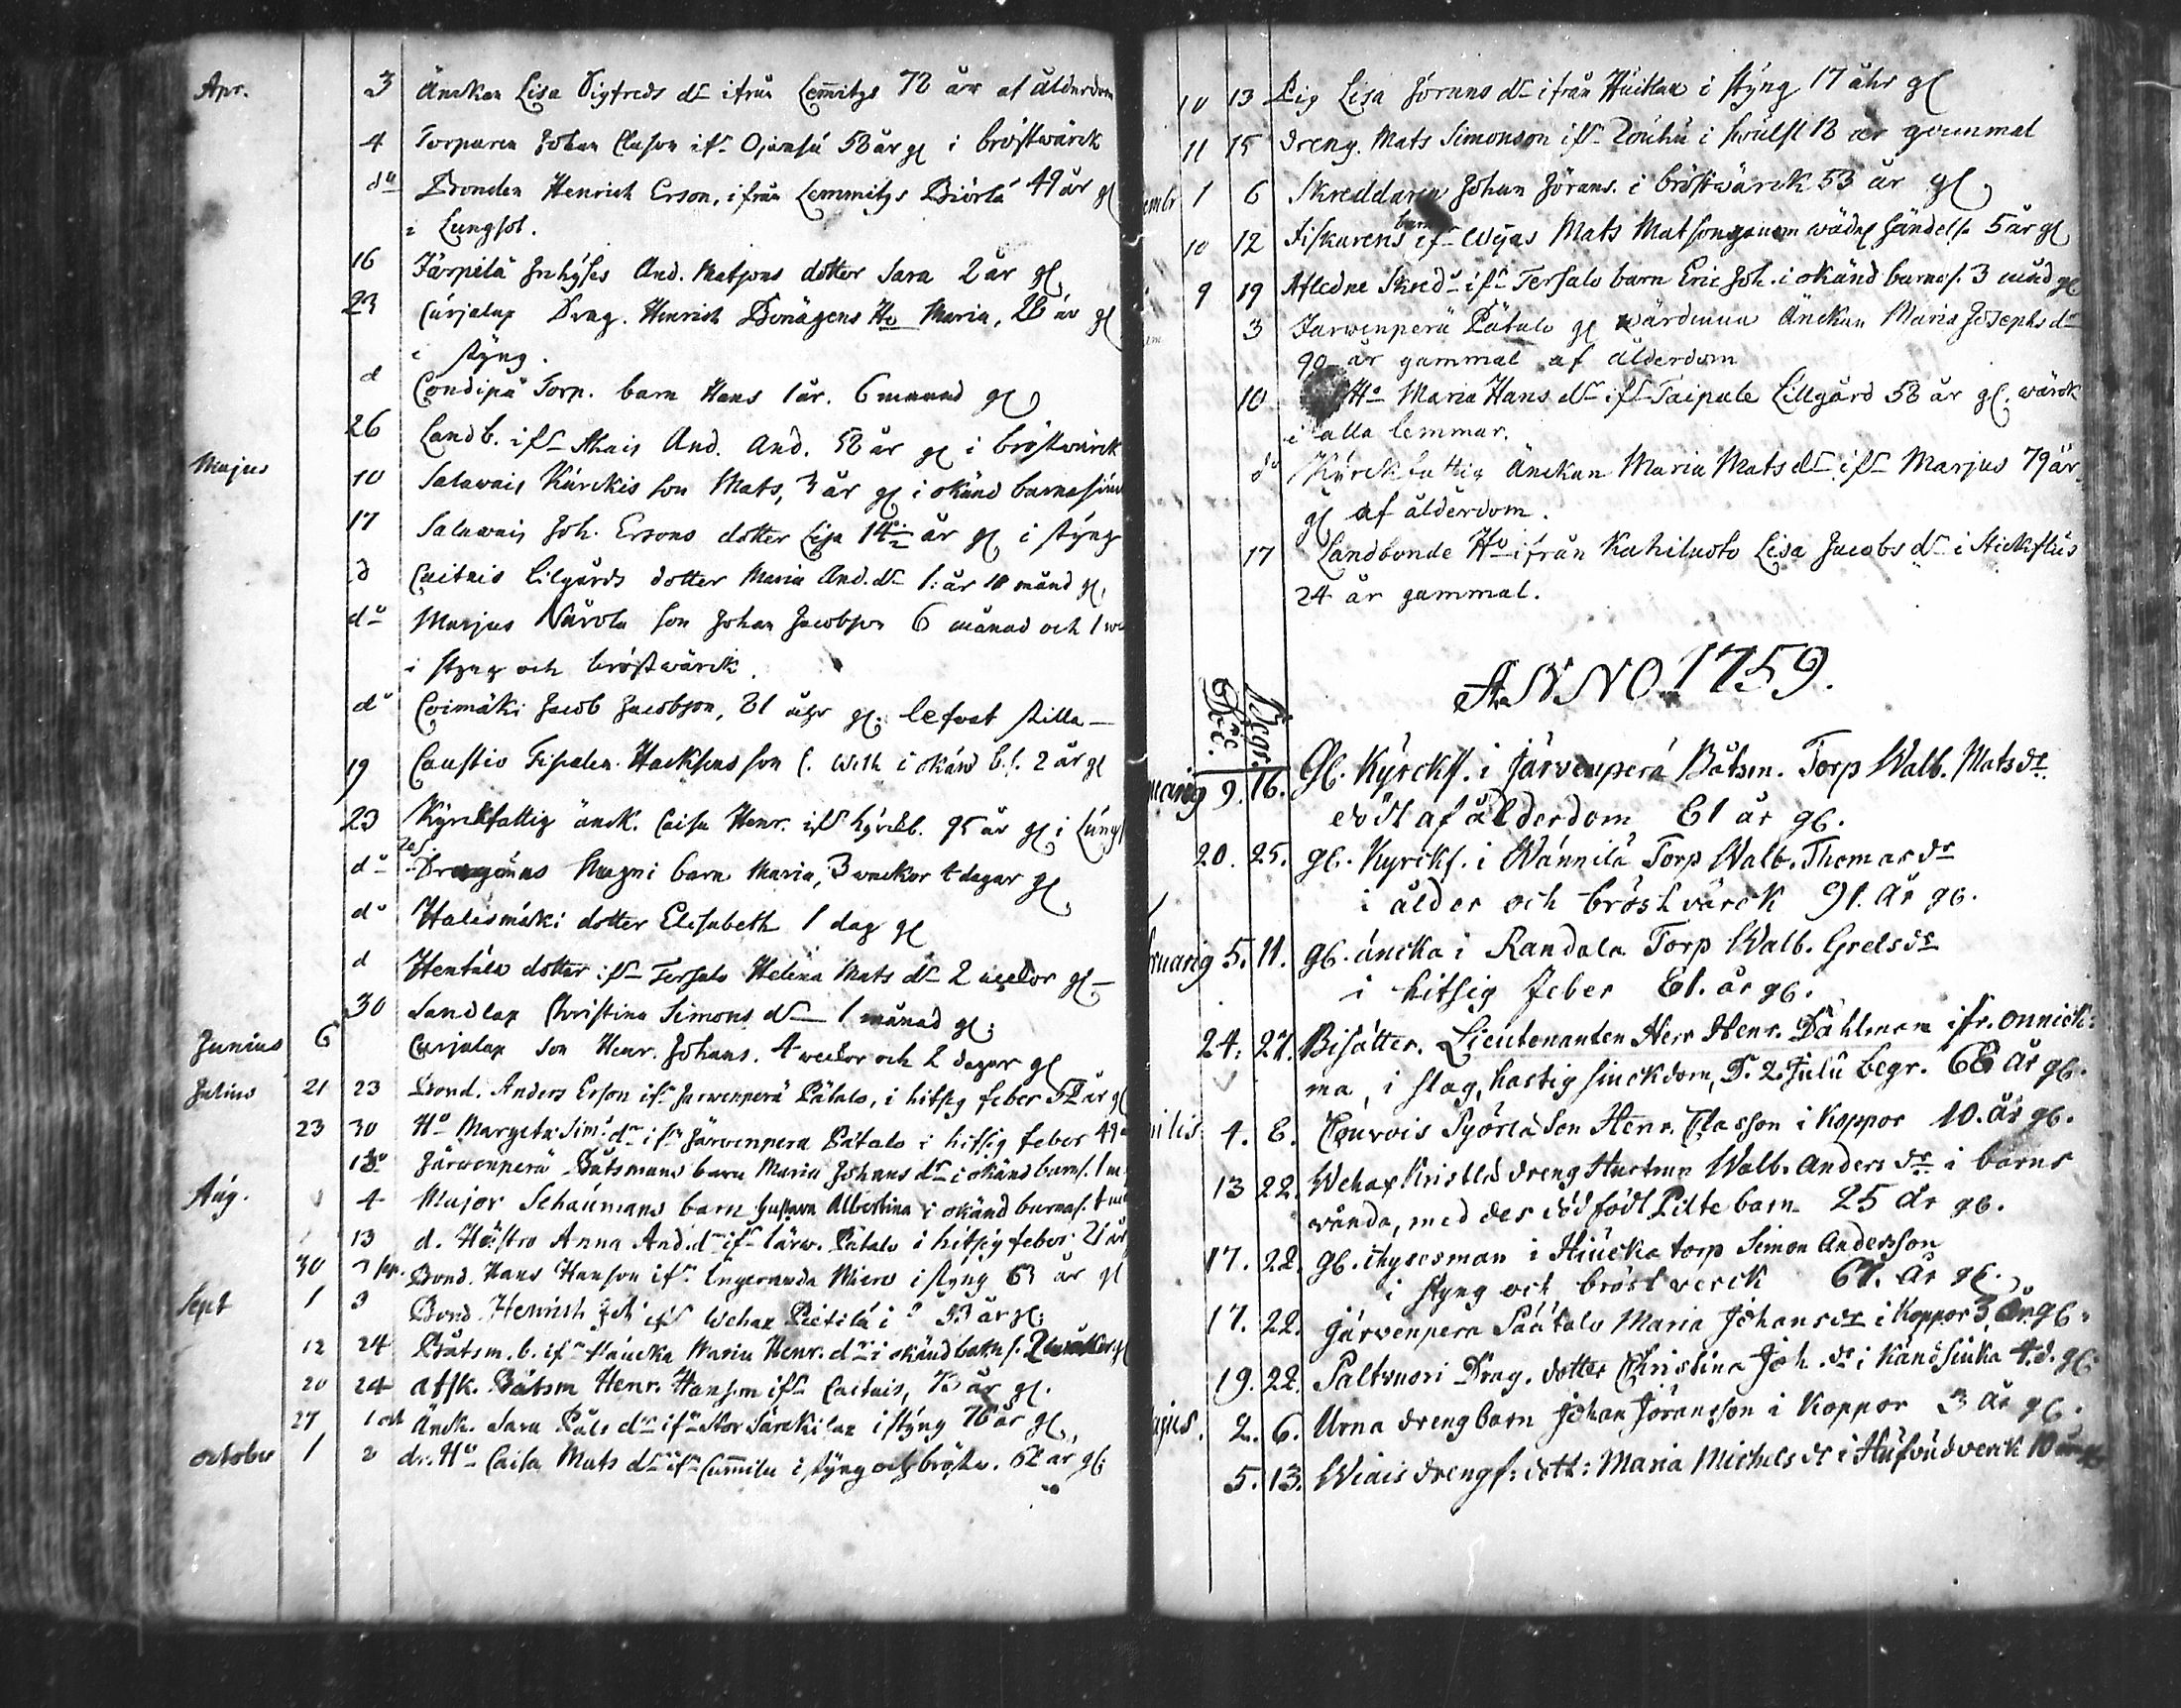 Apr. 3 Änckan Lisa Sigfreds dr ifrån Lemmitys 72 år af ålderdom
4 Torparen Johan Clason ifr Ojansú 58 år gl i bröstwärck
do Bonden Henrich Erson, ifrån Lemmitys Biörlä 49 år gl
i Lungsot.
16 Järpilä Inhyses And. Matsons dotter Sara 2 år gl
23 Curjalax Drag. Henrich Ho Maria, 28 år gl
i styng.
d Condipä Torp. barn Hans 1 år. 6 månad gl
26 Landb. ifr And. And. 58 år gl i bröstwärck
Majus 10 Salawais Kúrckis son Mats, 3 år gl i okänd
17 Salawais Joh. Ersons dotter Lisa 14 år gl i styng
d Caitais Lilgårds dotter Maria And. dr 1: år 10 månd gl.
do Marjus Nårola son Johan Jacobson 6 månad och 1
i styng och bröstwärck.
do Coimäki Jacob Jacobson, 81 åhr gl. lefvat stilla
19 Caustio son i okänd b.s. 2 år gl
23 Kyrckfattig änck. Caisa Henr. ifr kyrckb. 95 år gl i
do barn Maria, 3 weckor 4 dagar gl
do Halesmäki dotter Elisabeth 1 dag gl
d Hentälä dotter ifr Tersalo Helena Mats dr 2 gl
30 Sandlax Christina Simons dr 1 månad gl.
Junius 6 Curjalax son Henr. Johans. 4 weckor och 2 dagar gl
Julius 21 23 Bond. Anders Erson ifr Jarwenperä Pätalo, i hitsig feber 52 år gl
23 30 Ho Margeta Sim: dr ifr Järwenpera Pätalo i hitsig feber 49
13 Järwenperä Båtsmans barn Maria Johans dr i okänd barns. 1
Aúg. 4 Major Schaúmans barn Gustava Albertina i okänd barnas.
13 d. Anna And. dr ifr Pätalo i hitsig feber 21 år
30 Bond. Hans Hanson ifr i styng 63 år gl
Sept 1 3 Bond. Henrich Joh: ifr Wehax Pietilä i 53 år gl.
12 24 Båtsm. b. ifr Maria Henr. dr i okänd barns. 2
20 24 afsk. Båtsm Henr. Hanson ifr Caitais, 73 år gl.
27 1 Änck. Sara Påls dr ifr Stor Särckilax i styng 76 år gl.
october 1 dr. Ho Caisa Mats dr ifr i styng och bröstw. 62 år gl.
10 13 Pig Lisa Jörans dr ifrån i styng 17 åhr gl
11 15 dreng. Mats Simonson ifr i 18 år gammal
embr 1 6 Skreddaren Johan Jörans. i bröstwärck 53 år gl
10 12 Fiskarens barn ifr Mats Matson genom wådes händelse 5 år gl
9 19 Afledne Skredd ifr Tersalo barn Eric Joh. i okänd barns. 3 månd gl
3 Jarwenperä Pätalo gl wärdinna Änckan Maria Josephs dr
90 år gammal af ålderdom
10 Ho Maria Hans dr ifr Taipale Lillgård 58 år gl. wärck
i alla lemmar.
do Kyrckfattig Änckan Maria Mats dr ifr Marjus 79 år
gl af ålderdom.
17 Landbonde Ho ifrån Kahiluoto Lisa Jacobs dr i
24 år gammal.
ANNO 1759.
Begr.
9. 16. Gl. Kyrckf. i Järvenperá Båtsm. Torp Walb. Mats dr.
ålderdom 81 år gl.
20. 25. gl. Kyrckf. i Wánnilá Torp Walb. Thomas dr
i ålder och bröstvärck 91. år gl.
5. 11. gl. áncka i Randala Torp Walb. Grels dr
i hitsig feber 81. år gl.
24. 27. Bisátter. Lieutenanten Herr Henr. Dáhlman ifr. onnick:
ma, i slag, hastig siuckdom, D. 2 Julii begr. 68 år gl.
4. 8. son Henr. Classon i Koppor 10. år gl.
13 22. Wehax dreng Hustrun Walb. Anders dr. i barns
wånda, med des död födt Pilte barn 25 år gl.
17. 22. gl. ihysesman i torp Simon Andersson
i styng och bröst verck 67. år gl.
17. 22. járvenpera Páátalo Maria Johans dr i Koppor 3 år gl.
19. 22. Paltvuori Drag. dotter Christina Joh. dr i 4. d. gl.
2. 6. Urna dreng barn Johan Jöransson i Koppor 3 år gl.
5. 13. Wiais drengs: dott: Maria Michels dr i Húfvúdverck 10